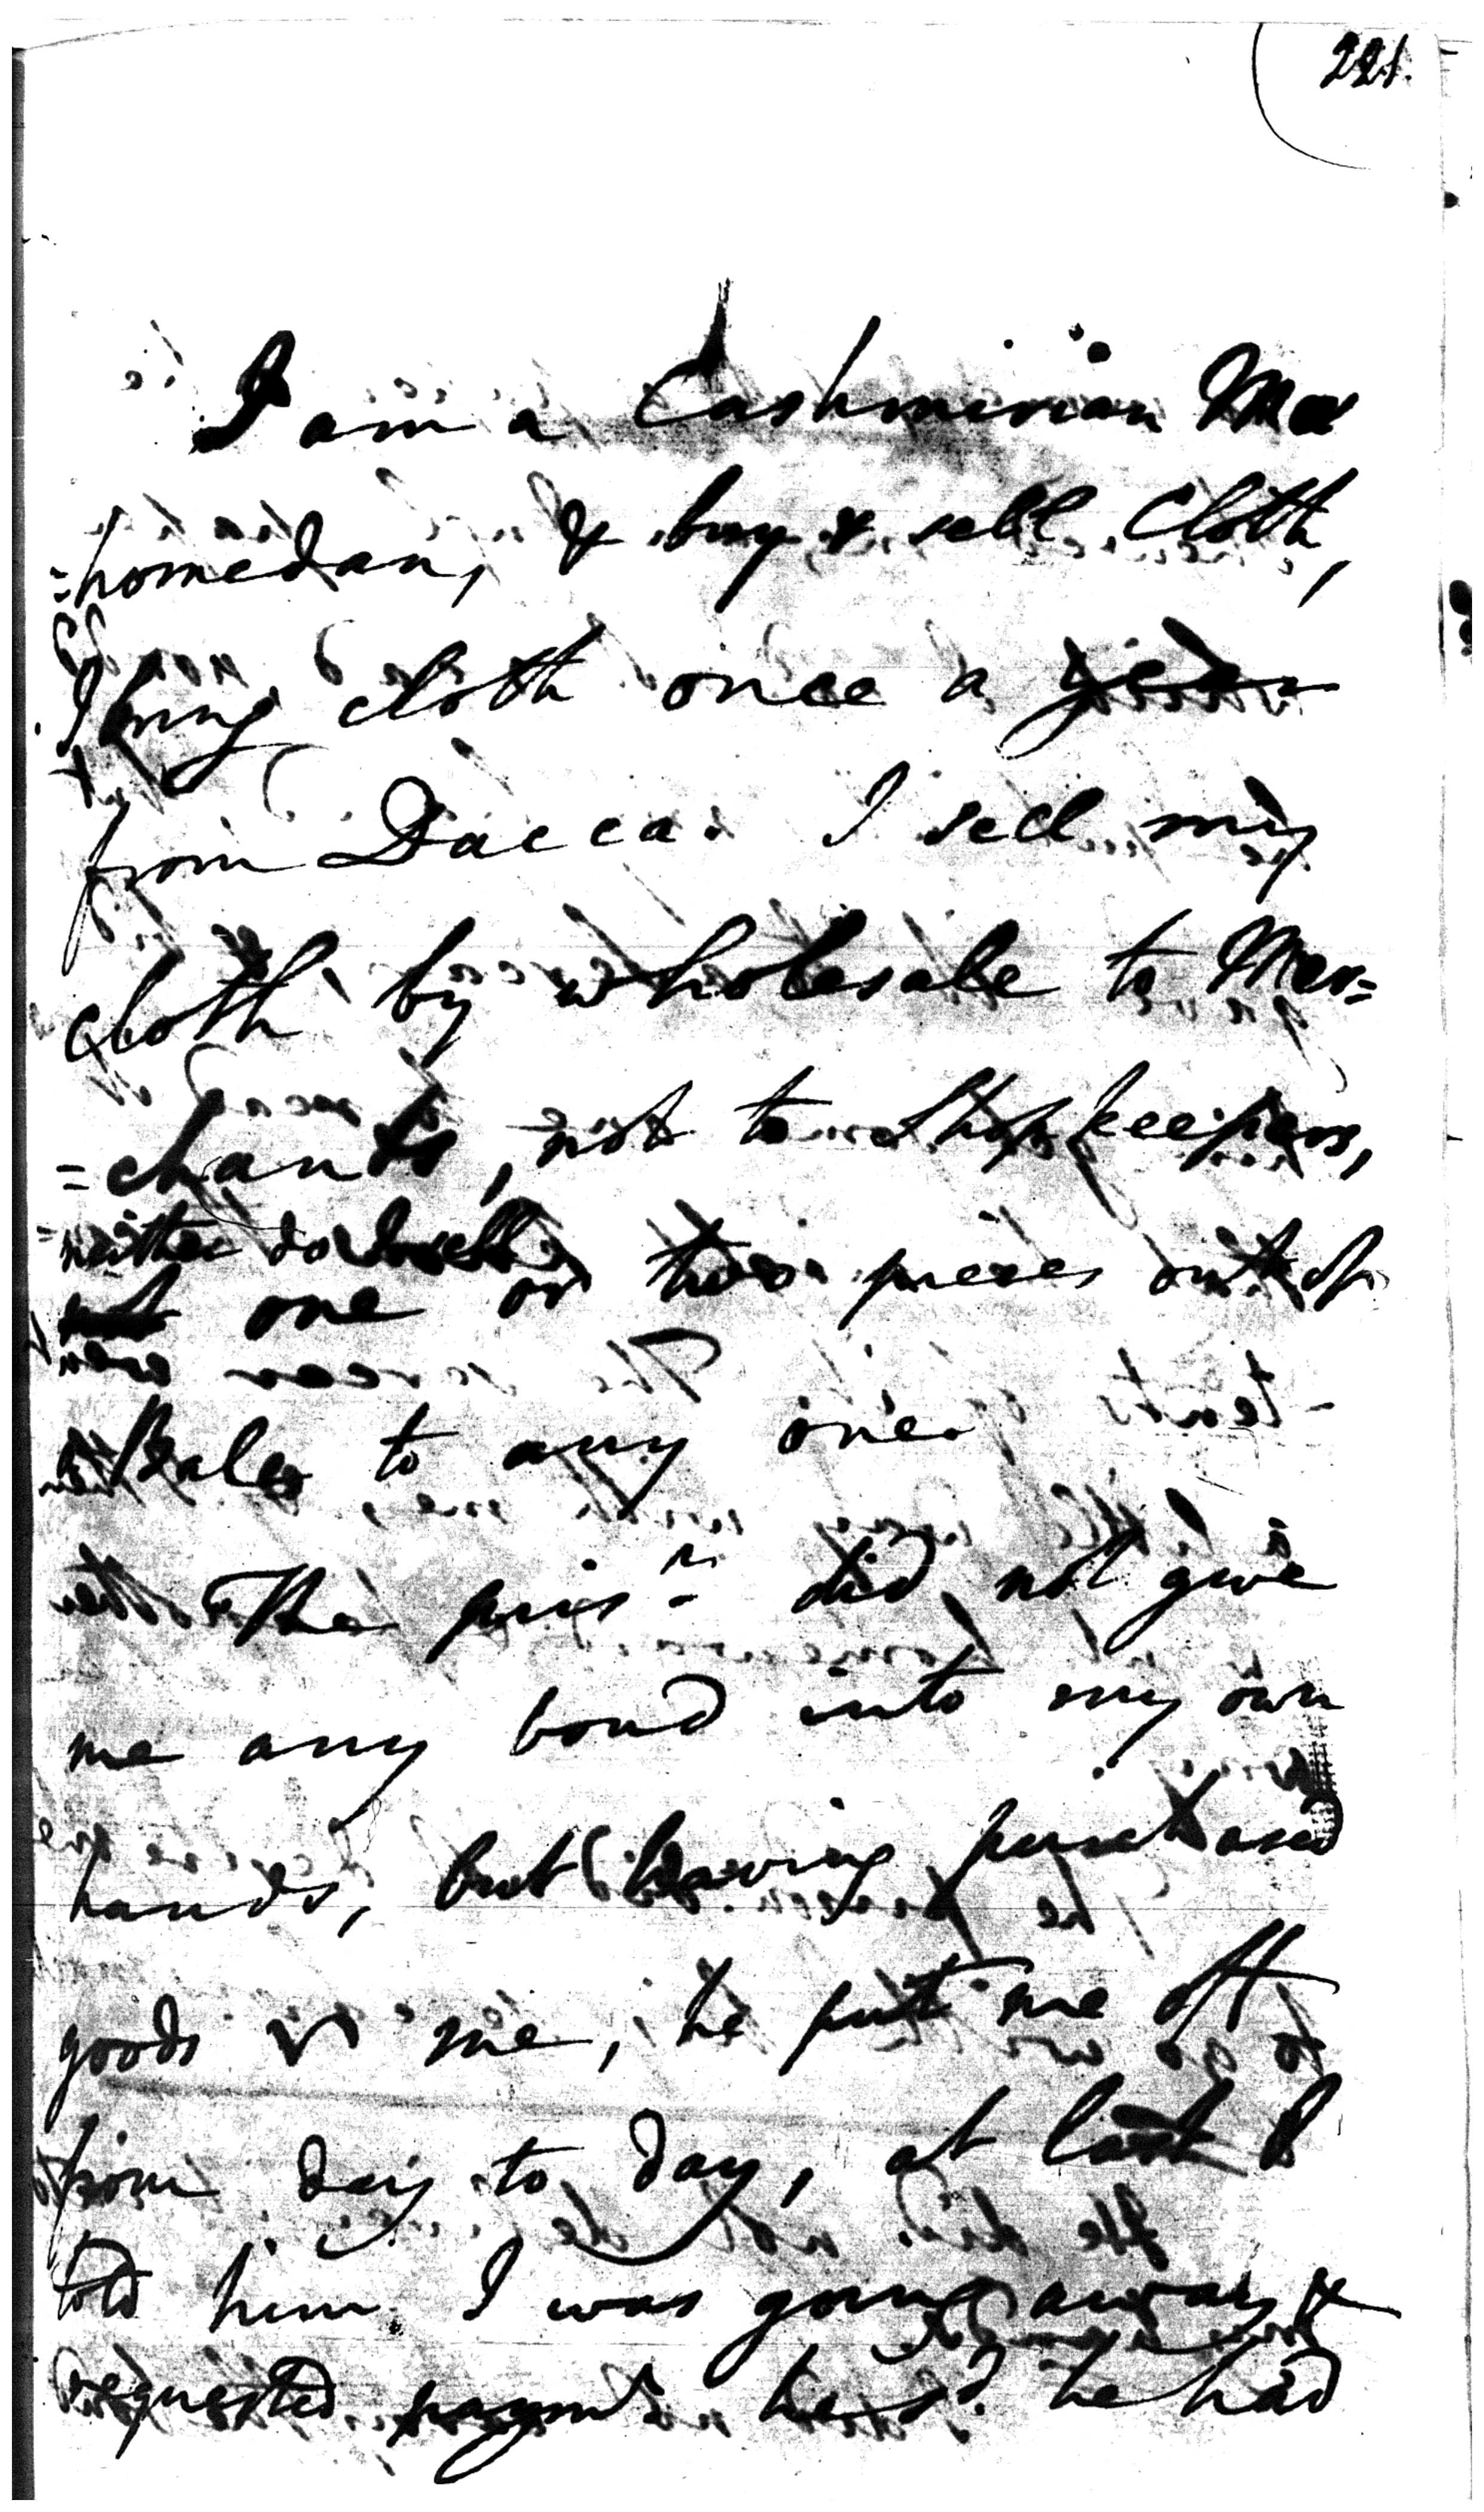 221.
I am a Cashmirian Ma
=homedan, & buy & sell Cloth,
I bring cloth once a year
from Dacca. I sell my
cloth by wholesale to Mer=
=chants, not to Shopkeepers,
neither do I sell
one or two pieces out of
Bales to any one.
The pris.r did not give
me any bond into my own
hands, but having purchased
goods of me, he put me off
from day to day, at last I
told him I was going away &
requested paymt. he sd. he had